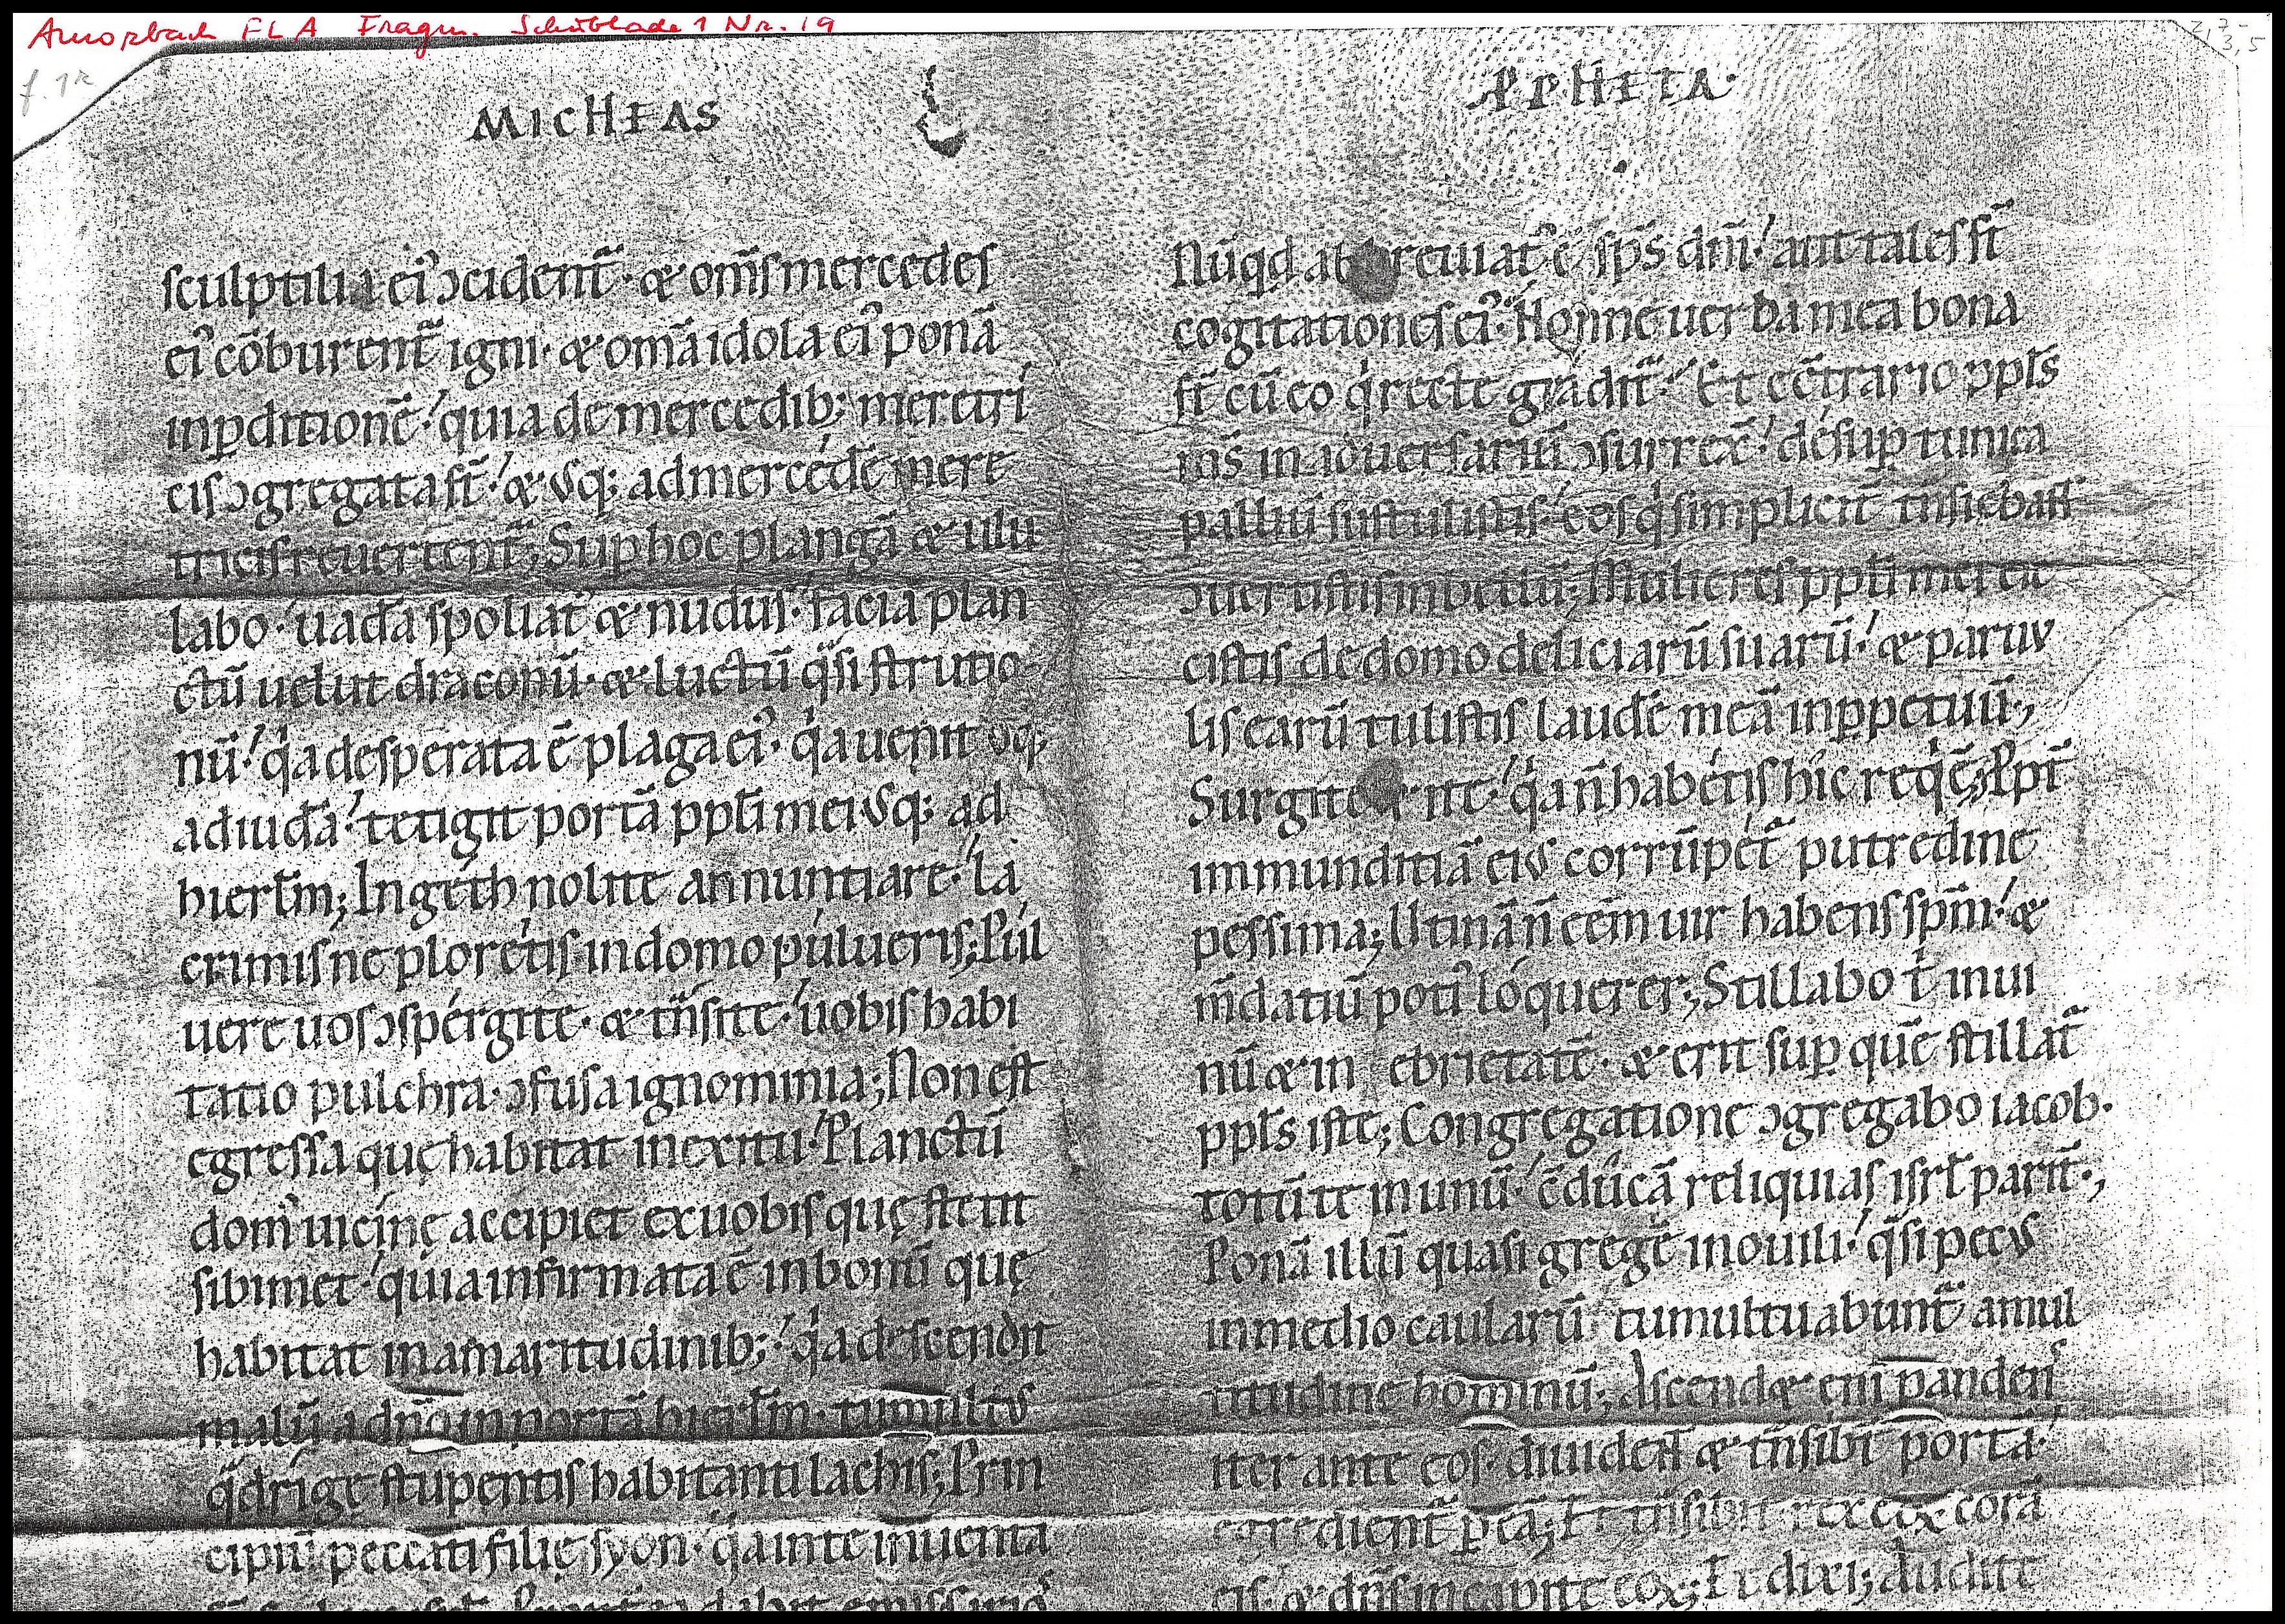 Amorbach FLA Fragm. Schublade 1 Nr. 19
2,7-
3,5
f. 1r
MICHEAS
sculptilia ei᷒ ↄcident᷑. & om̄s mercedes
ei᷒ cōburent᷑ igni. & om̄a idola ei᷒ ponā
inꝑditionē! quia de mercedib; meretri
cis ↄgregata sī̄t! & usq; ad mercédē mere
tricis reuertent᷑; Suꝑ hoc plangā & ulu
labo. uadā spoliat᷒ & nudus. faciā plan
ctū uelut draconū. & luctū q̄si strutio
nū! qͥa desperata ē plaga ei᷒. qͥa uenit usq;
ad iudā! tetigit portā ppl̄i mei usq; ad
hierl̄m; In géth nolite annuntiare! La
crimis ne plorétis in domo púlueris; Púl
uere uos ↄspérgite. & trn̄site! uobis habi
tatio pulchra. ↄfusa ignominia; Non est
egressa quę habitat in exitu! Planctū
dom᷒ uicinę accipiet ex uobis quę stetit
sibimet! quia infirmata ē in bonū quę
habitat in amaritudinib;! qͥa descendit
malū a dn̄o in portā hierl̄m. tumultus
q̄drigę stupentis habitanti lachis; Prin
cipiū peccati filię syon. qͥa in te inuenta
PPHETA.
Nūqd abbreuiat᷒ ē sp̄s dn̄i! aut tales st̄
cogitationes ei᷒. Nonne uerba mea bona
st̄ cū eo qͥ recte gradit᷑. Et ec̄trario ppl̄s
in aduersariū ↄsurrex̄! désuꝑ tunica
palliū sustulistis. eos qͥ simplicit̄
ↄuertistis in bellū; Mulieres ppl̄i mei eie
cistis de domo deliciarū suarū! & paruu
lis earū tulistis laudē meā inꝑpetuū;
Surgite & ite! qͥa n̄ habétis hic reqͥē; Ppt̄
immunditiā eius corrūpét᷑ putredine
pessima; Utinā n̄ cēm uir habens sp̄m! &
m̄datiū poti᷒ lóquerer; Stillabo tͥ in ui
nū & in ebrietatē. & erit suꝑ quē stillat᷑
ppl̄s iste; Congregatione ↄgregabo iacob.
totū te in unū! c̄dúcā reliquias isrl̄ parit̄;
Ponā illū quasi gregē in ouili! q̄si pecus
in medio caularū. tumultuabunt᷑ a mul
titudine hominū; Ascend& eni pandens
iter ante eos. diuident & trn̄sibt portā!
egredient᷑ ꝑ eā; Et trn̄sibit rex eoꝝ corā
eis. & dn̄s in capite eoꝝ; Et dixi; Audite